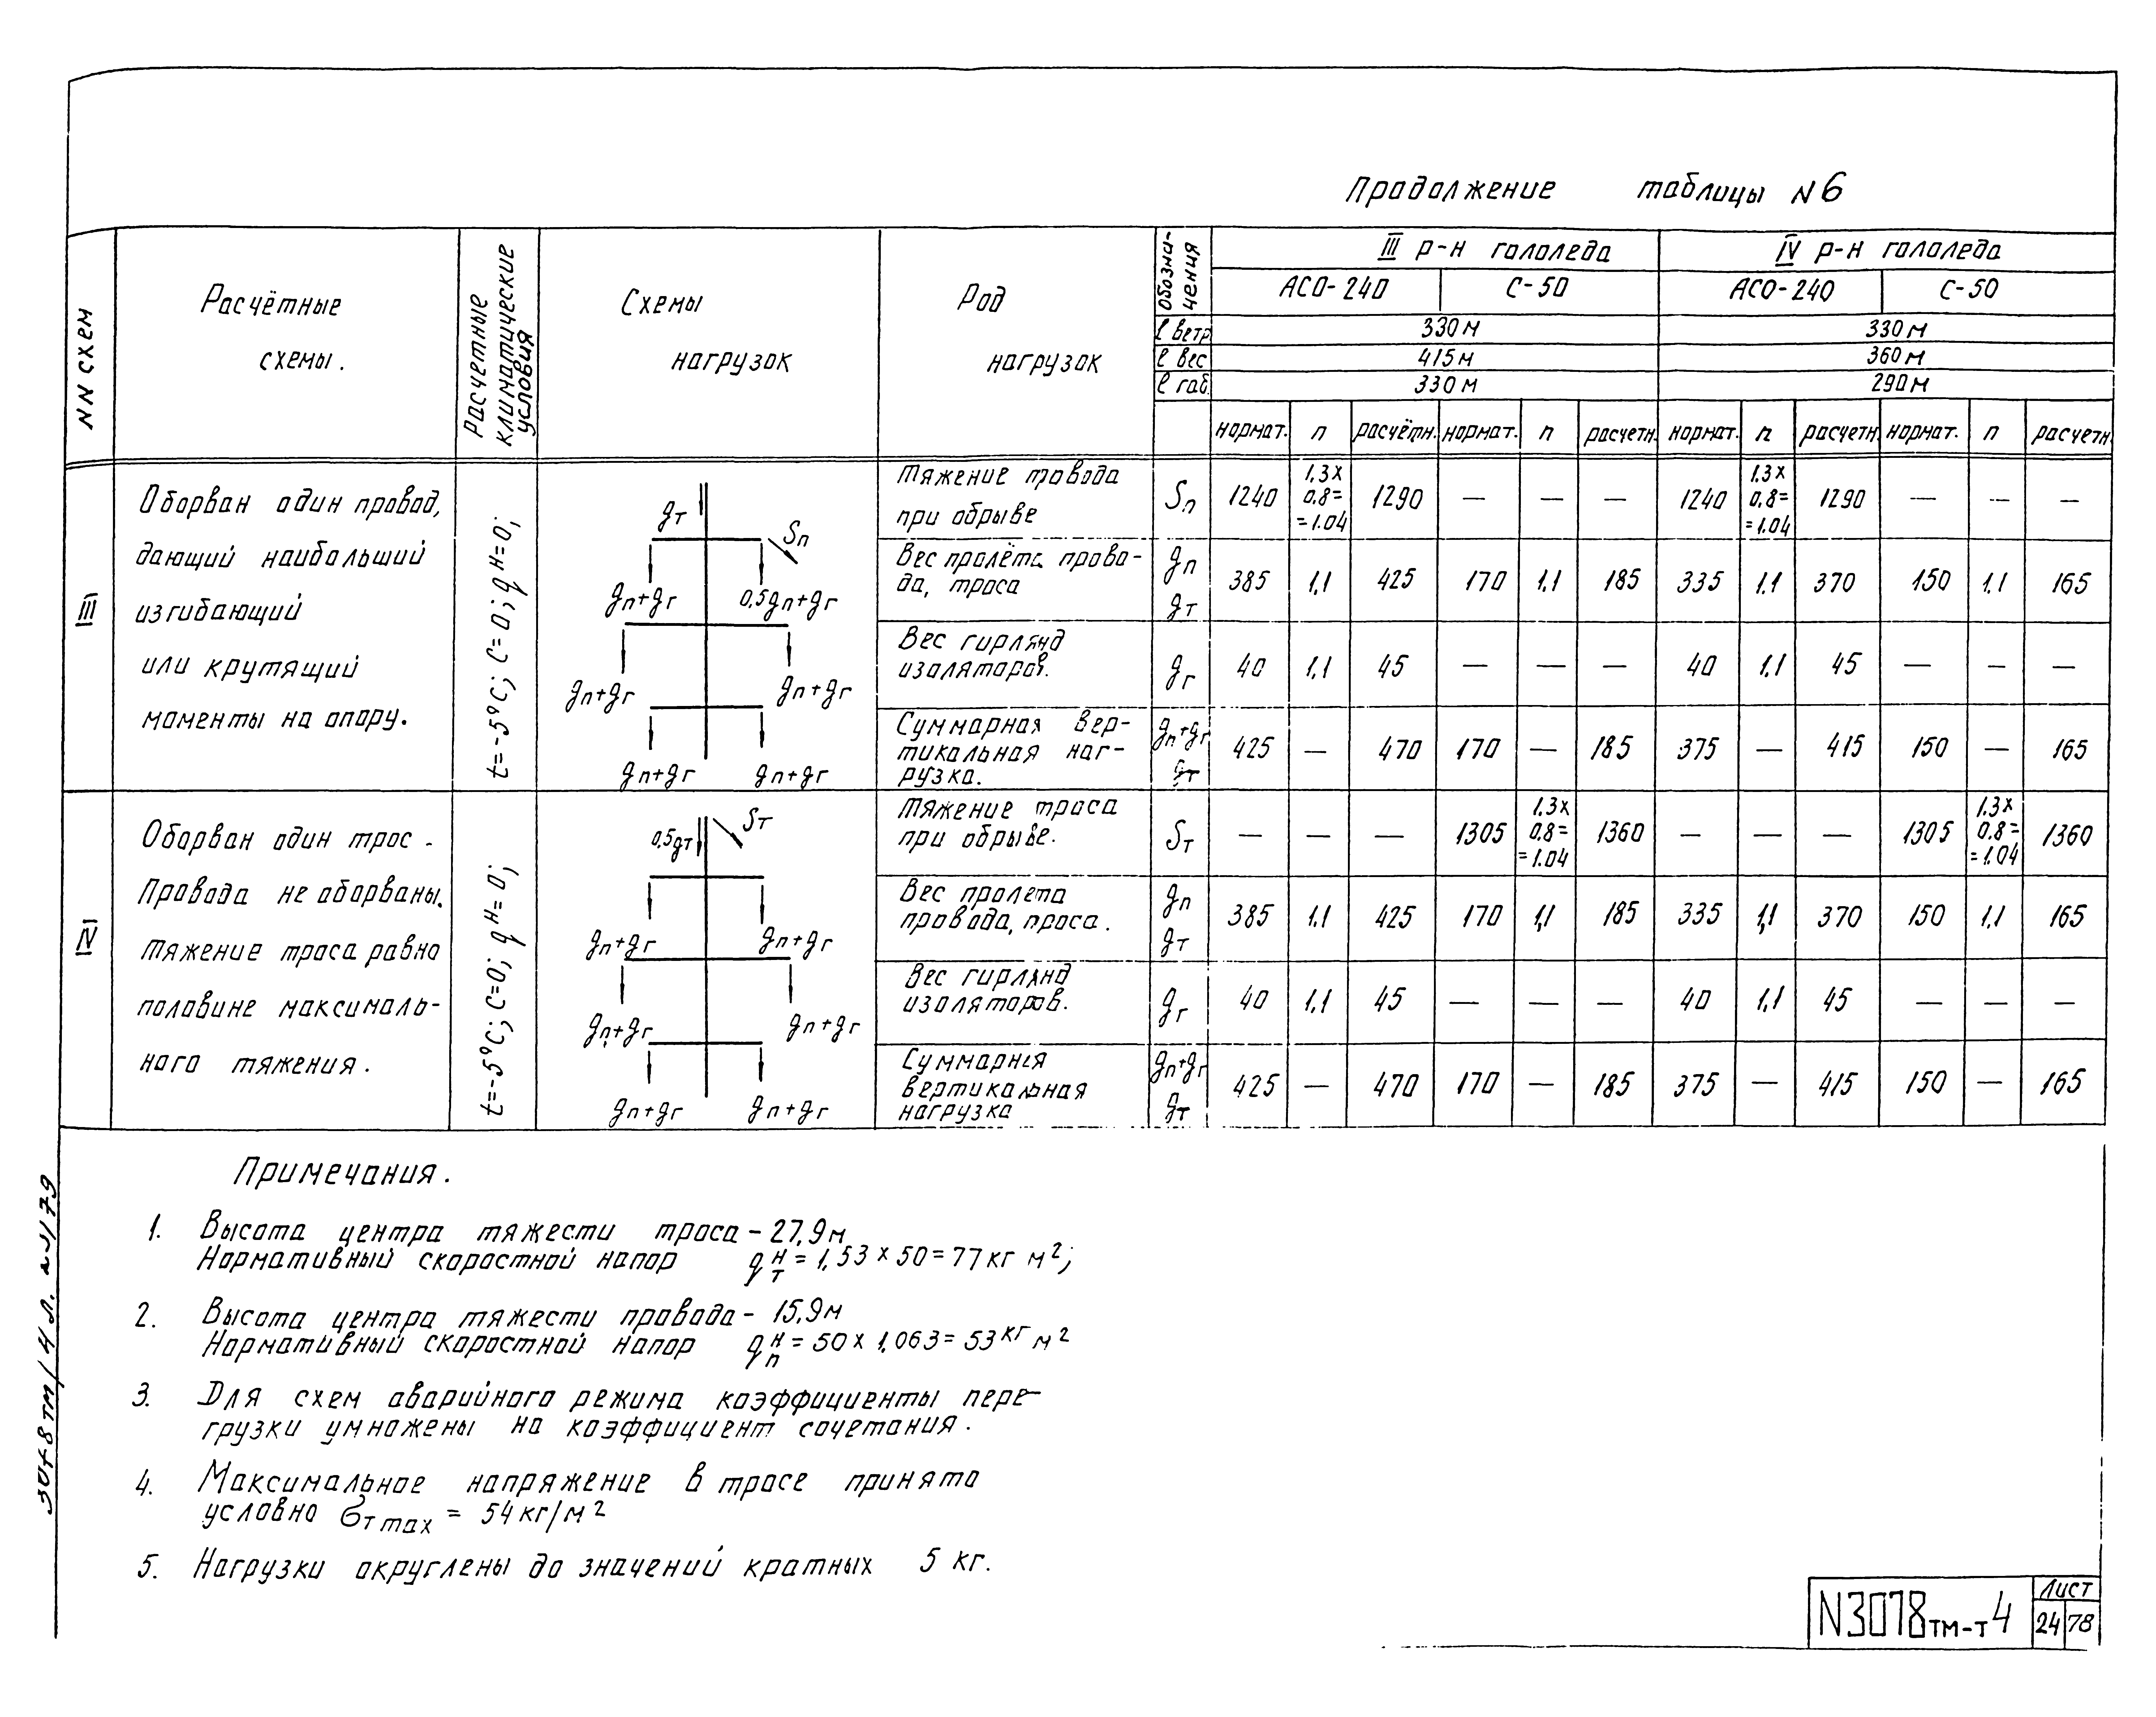 Продолжение таблицы N6
NN схем
Расчётные схемы.
Расчетные климатические условия
Схемы нагрузок
Род нагрузок
Обозначения
III р-н гололеда
IV р-н гололеда
АСО-240
С-50
АСО-240
С-50
l ветр 330м 330м
l вес 415м 360м
l габ. 330м 290м
нормат. n расчётн. нормат. n расчетн. нормат. n расчетн. нормат. n расчетн.
III
Оборван один провод,
дающий наибольший
изгибающий
или крутящий
моменты на опору.
t=-5°C; C=0; qн=0;
gт
Sп
gп+gг 0,5gп+gг
gп+gг gп+gг
gп+gг gп+gг
Тяжение провода
при обрыве
Sп 1240 1,3х 0,8= =1.04 1290 — — — 1240 1.3х 0,8= =1.04 1290 — — —
Вес пролёта прово-
да, троса
gп gт 385 1,1 425 170 1.1 185 335 1.1 370 150 1.1 165
Вес гирлянд
изоляторов.
gг 40 1,1 45 — — — 40 1,1 45 — — —
Суммарная вер-
тикальная наг-
рузка.
gп+gг gт 425 — 470 170 — 185 375 — 415 150 — 165
IV
Оборван один трос.
Провода не оборваны.
Тяжение троса равно
половине максималь-
ного тяжения.
t=-5°C; C=0; qн=0;
0,5gт
Sт
gп+gг gп+gг
gп+gг gп+gг
gп+gг gп+gг
Тяжение троса
при обрыве.
Sт — — — 1305 1.3х 0.8= =1.04 1360 — — — 1305 1.3х 0.8= =1.04 1360
Вес пролета
провода, троса.
gп gт 385 1.1 425 170 1,1 185 335 1,1 370 150 1.1 165
Вес гирлянд
изоляторов.
gг 40 1.1 45 — — — 40 1,1 45 — — —
Суммарная
вертикальная
нагрузка
gп+gг gт 425 — 470 170 — 185 375 — 415 150 — 165
Примечания.
1. Высота центра тяжести троса - 27,9м
Нормативный скоростной напор qнт = 1,53 х 50 = 77 кг м²;
2. Высота центра тяжести провода - 15,9м
Нормативный скоростной напор qнп = 50 х 1,063 = 53 кг м²
3. Для схем аварийного режима коэффициенты пере-
грузки умножены на коэффициент сочетания.
4. Максимальное напряжение в тросе принято
условно σт max = 54 кг/м²
5. Нагрузки округлены до значений кратных 5 кг.
N3078тм-т4
Лист
24 78